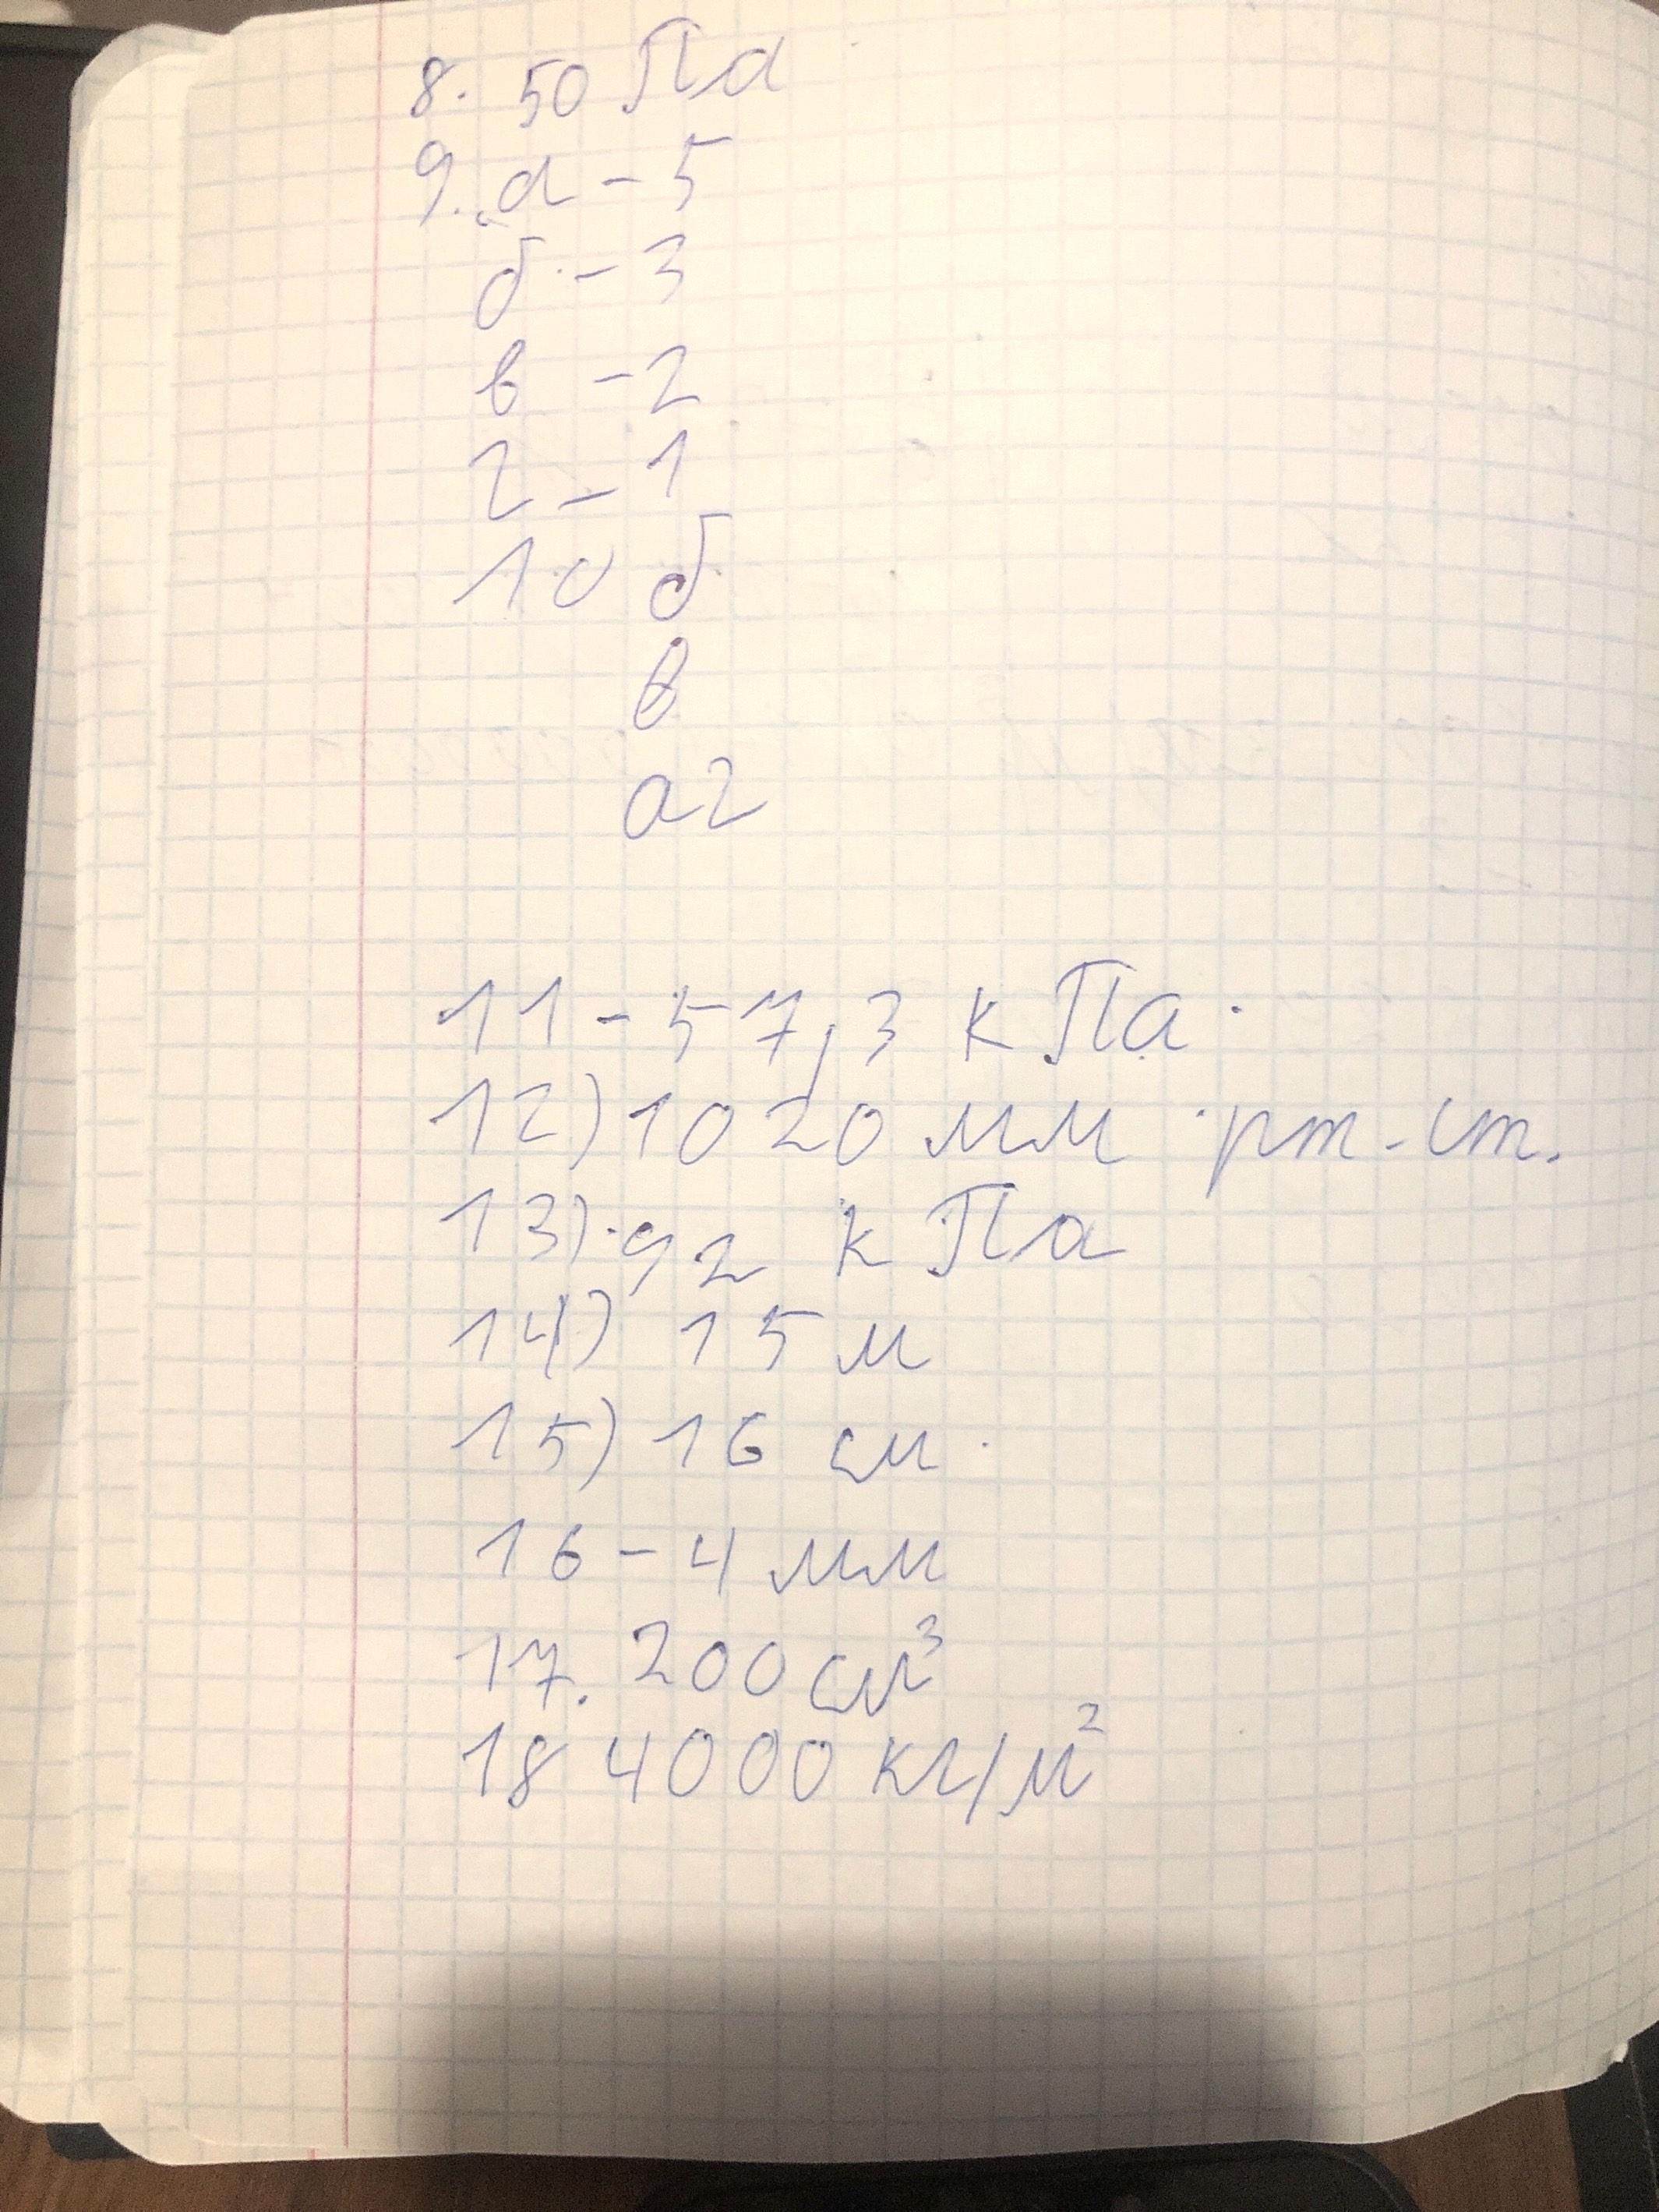 8. 50 Па
9. а - 5
б - 3
в - 2
г - 1
10 б
в
а2
11 - 57,3 кПа
12) 1020 мм рт. ст.
13) 92 кПа
14) 15 м
15) 16 см
16 - 4 мм
17. 200 см³
18 4000 кг/м²